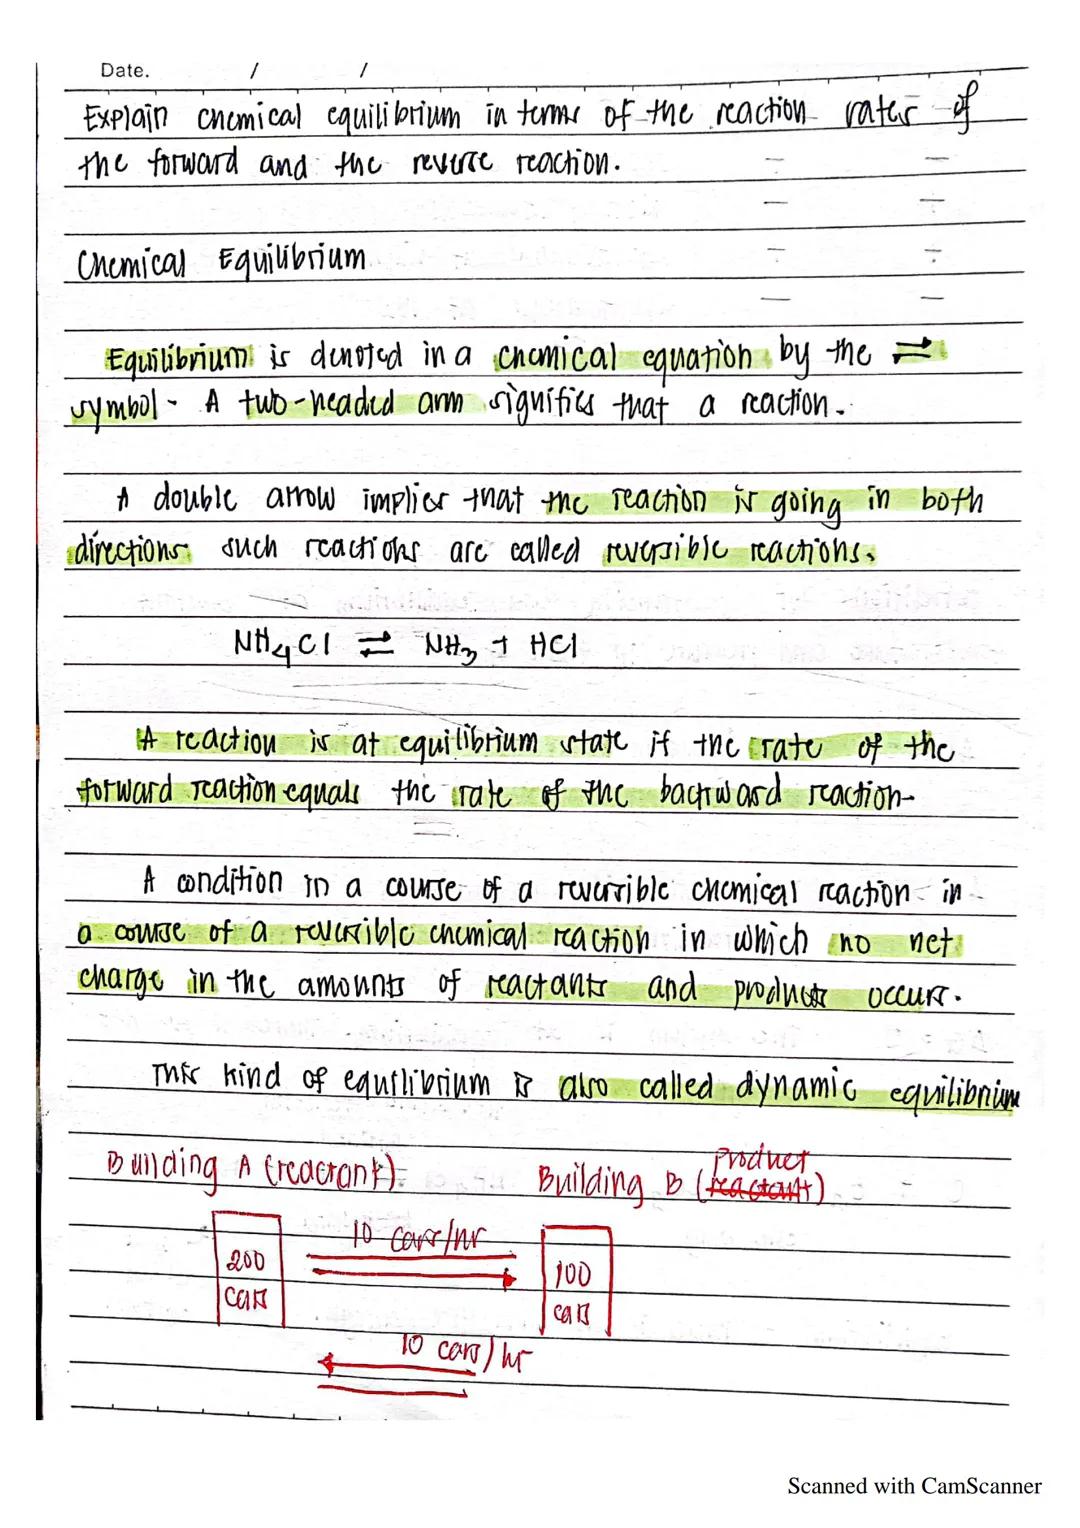 Date. / /
Explain chemical equilibrium in terms of the reaction rates of
the forward and the reverse reaction.
Chemical Equilibrium
Equilibrium is denoted in a chemical equation by the ⇌
symbol. A two-headed arrow signifies that a reaction.
A double arrow implies that the reaction is going in both
directions such reactions are called reversible reactions.
NH4Cl ⇌ NH3 + HCl
A reaction is at equilibrium state if the rate of the
forward reaction equals the rate of the backward reaction.
A condition in a course of a reversible chemical reaction in
a course of a reversible chemical reaction in which no net
charge in the amounts of reactants and products occurs.
This kind of equilibrium is also called dynamic equilibrium
Building A (reactant) Building B (reactant) product
200 cars
10 cars/hr
100 cars
10 cars/hr
Scanned with CamScanner